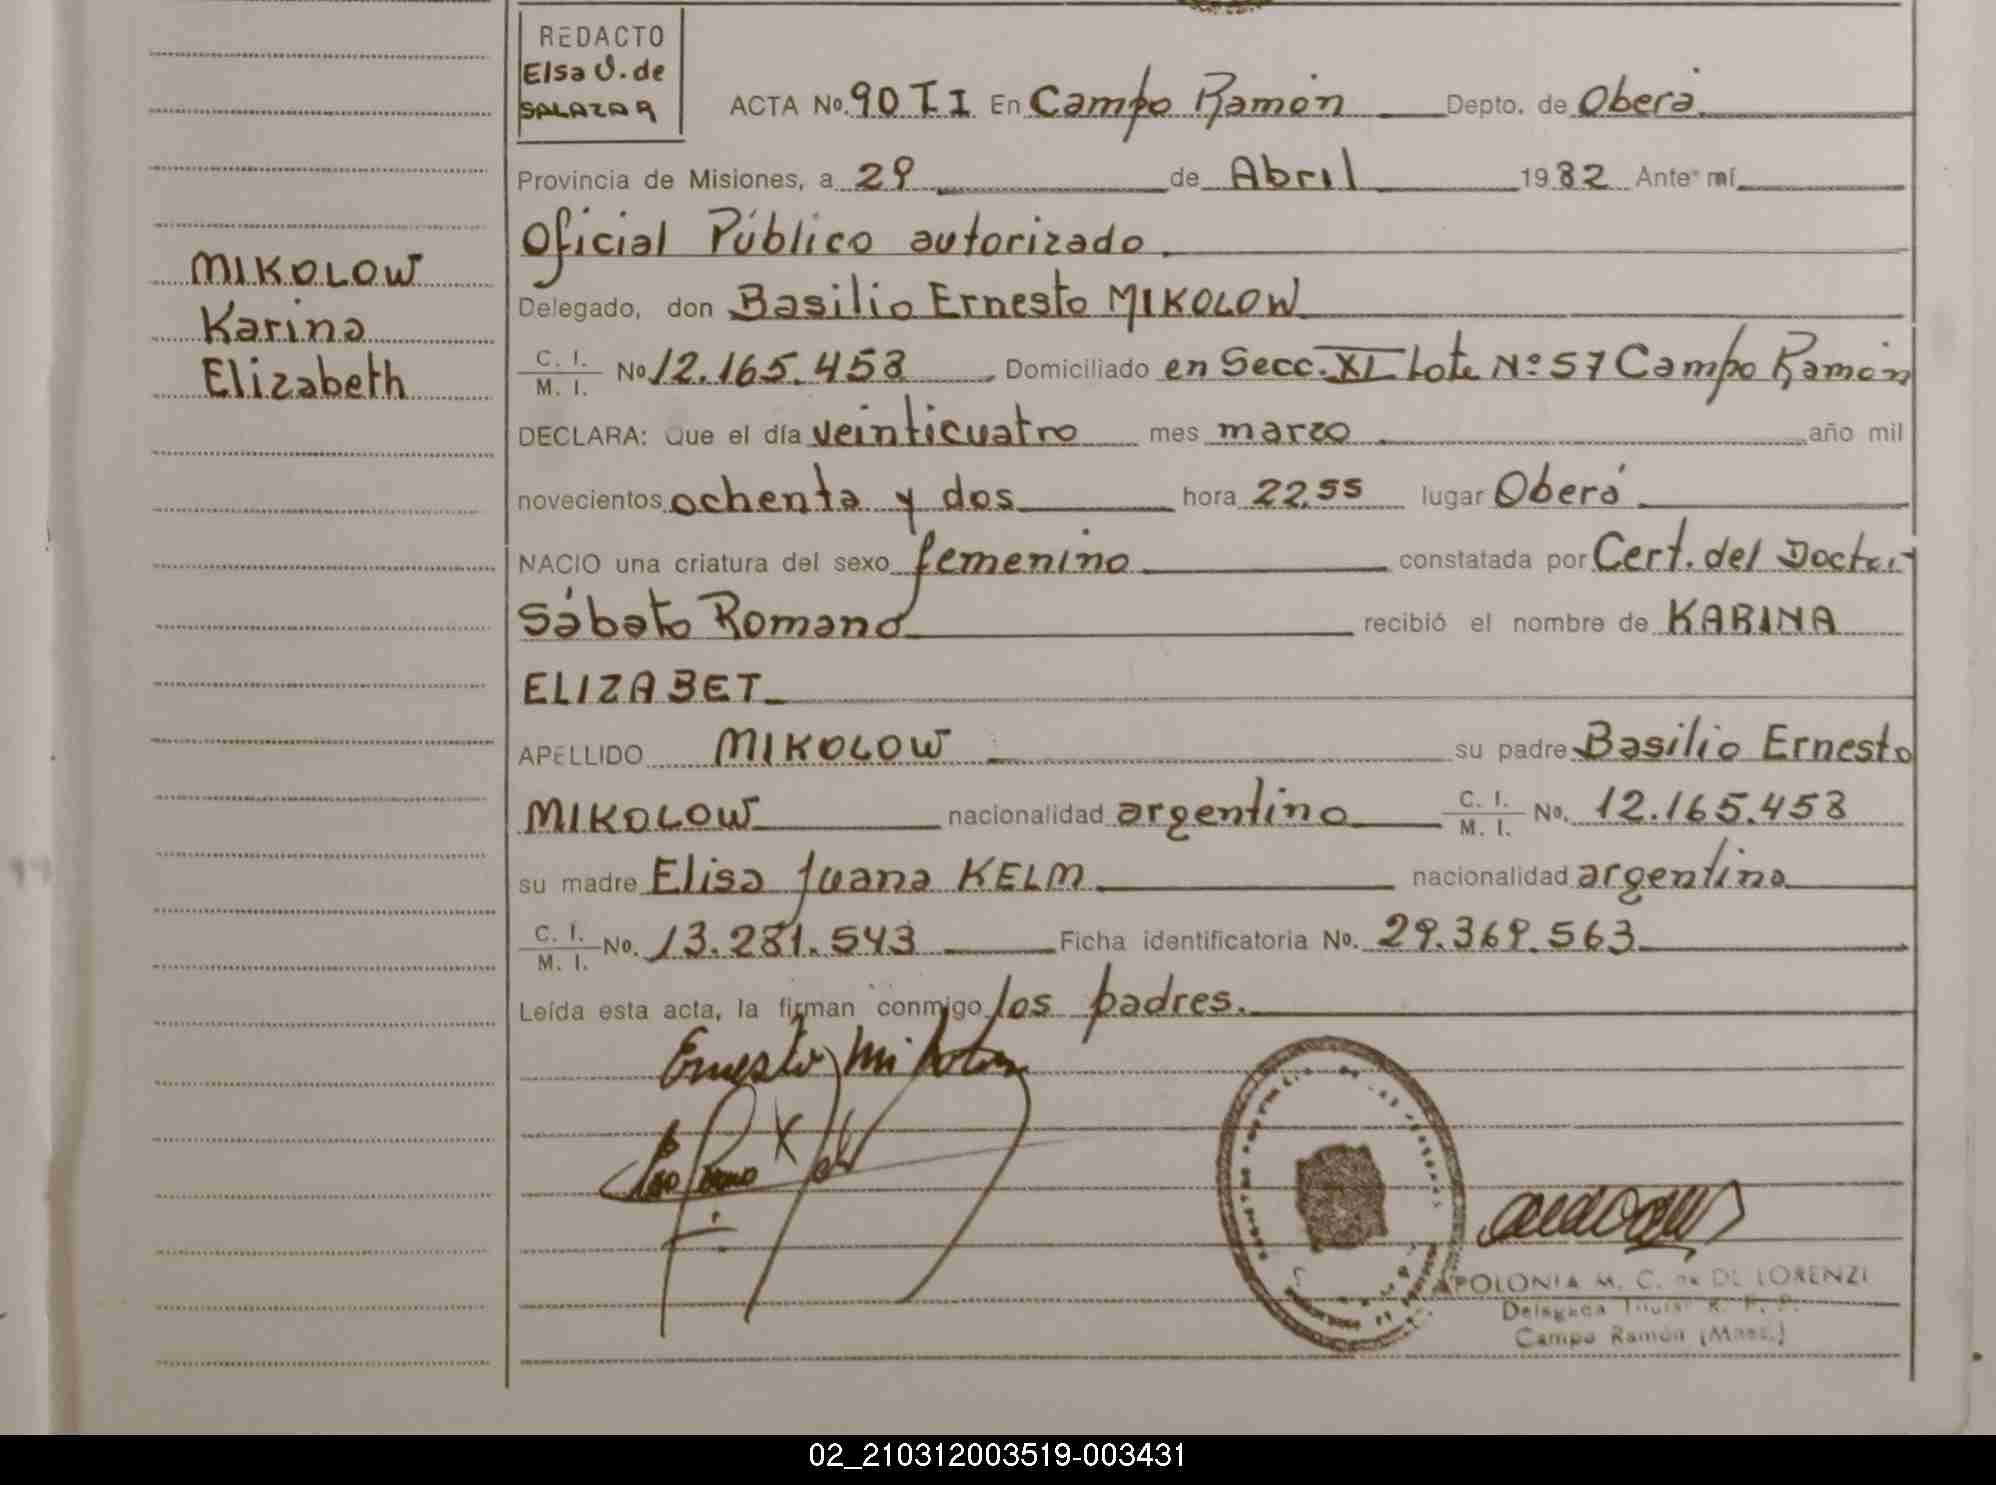 REDACTO
Elsa V. de
SALAZAR
ACTA No. 90 T I En Campo Ramón Depto. de Oberá
Provincia de Misiones, a 29 de Abril 1982 Ante mí
Oficial Público autorizado
MIKOLOW
Karina
Elizabeth
Delegado, don Basilio Ernesto MIKOLOW
C. I. / M. I. No 12.165.458 Domiciliado en Secc. XI Lote Nº 57 Campo Ramón
DECLARA: Que el día veinticuatro mes marzo año mil
novecientos ochenta y dos hora 22,55 lugar Oberá
NACIO una criatura del sexo femenino constatada por Cert. del Doctor
Sábato Romano recibió el nombre de KARINA
ELIZABET
APELLIDO MIKOLOW su padre Basilio Ernesto
MIKOLOW nacionalidad argentino C. I. / M. I. No. 12.165.458
su madre Elisa Juana KELM nacionalidad argentina
C. I. / M. I. No. 13.281.543 Ficha identificatoria No. 29.369.563
Leída esta acta, la firman conmigo los padres.
Ernesto Mikolow
APOLONIA M. C. DE DE LORENZI
Delegada Titular R. P. P.
Campo Ramón (Mnes.)
02_210312003519-003431